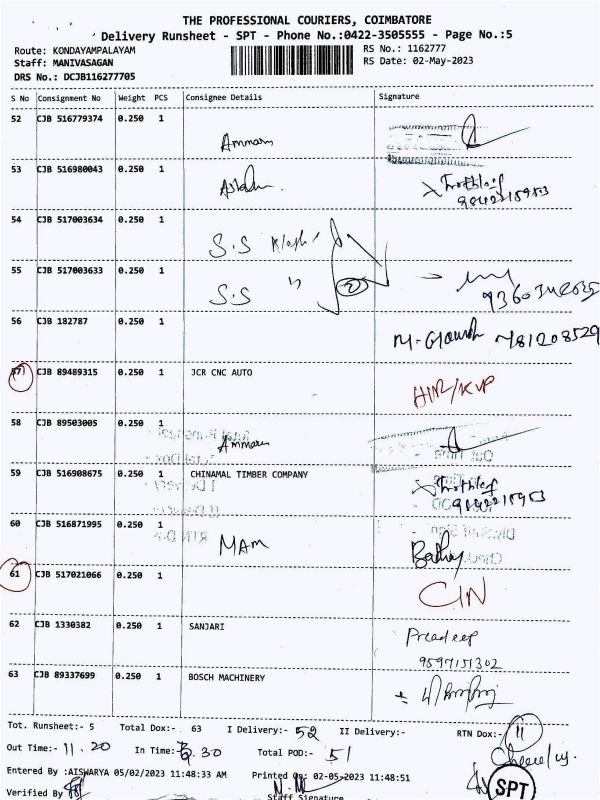 THE PROFESSIONAL COURIERS, COIMBATORE
Delivery Runsheet - SPT - Phone No.:0422-3505555 - Page No.:5
Route: KONDAYAMPALAYAM RS No.: 1162777
Staff: MANIVASAGAN RS Date: 02-May-2023
DRS No.: DCJB116277705
S No Consignment No Weight PCS Consignee Details Signature
52 CJB 516779374 0.250 1
Ammann
53 CJB 516980043 0.250 1
9842215953
54 CJB 517003634 0.250 1
S.S
55 CJB 517003633 0.250 1
S.S "
56 CJB 182787 0.250 1
57 CJB 89489315 0.250 1 JCR CNC AUTO
HIR/KVP
58 CJB 89503005 0.250 1
Ammann
59 CJB 516908675 0.250 1 CHINAMAL TIMBER COMPANY
9842215953
60 CJB 516871995 0.250 1
MAM
61 CJB 517021066 0.250 1
CIN
62 CJB 1330382 0.250 1 SANJARI
Pradeep
9597151302
63 CJB 89337699 0.250 1 BOSCH MACHINERY
Tot. Runsheet:- 5 Total Dox:- 63 I Delivery:- 52 II Delivery:- RTN Dox:- 11
Out Time:- 11.20 In Time: 30 Total POD:- 51
Entered By :AISWARYA 05/02/2023 11:48:33 AM Printed On: 02-05-2023 11:48:51
Verified By Staff Signature SPT